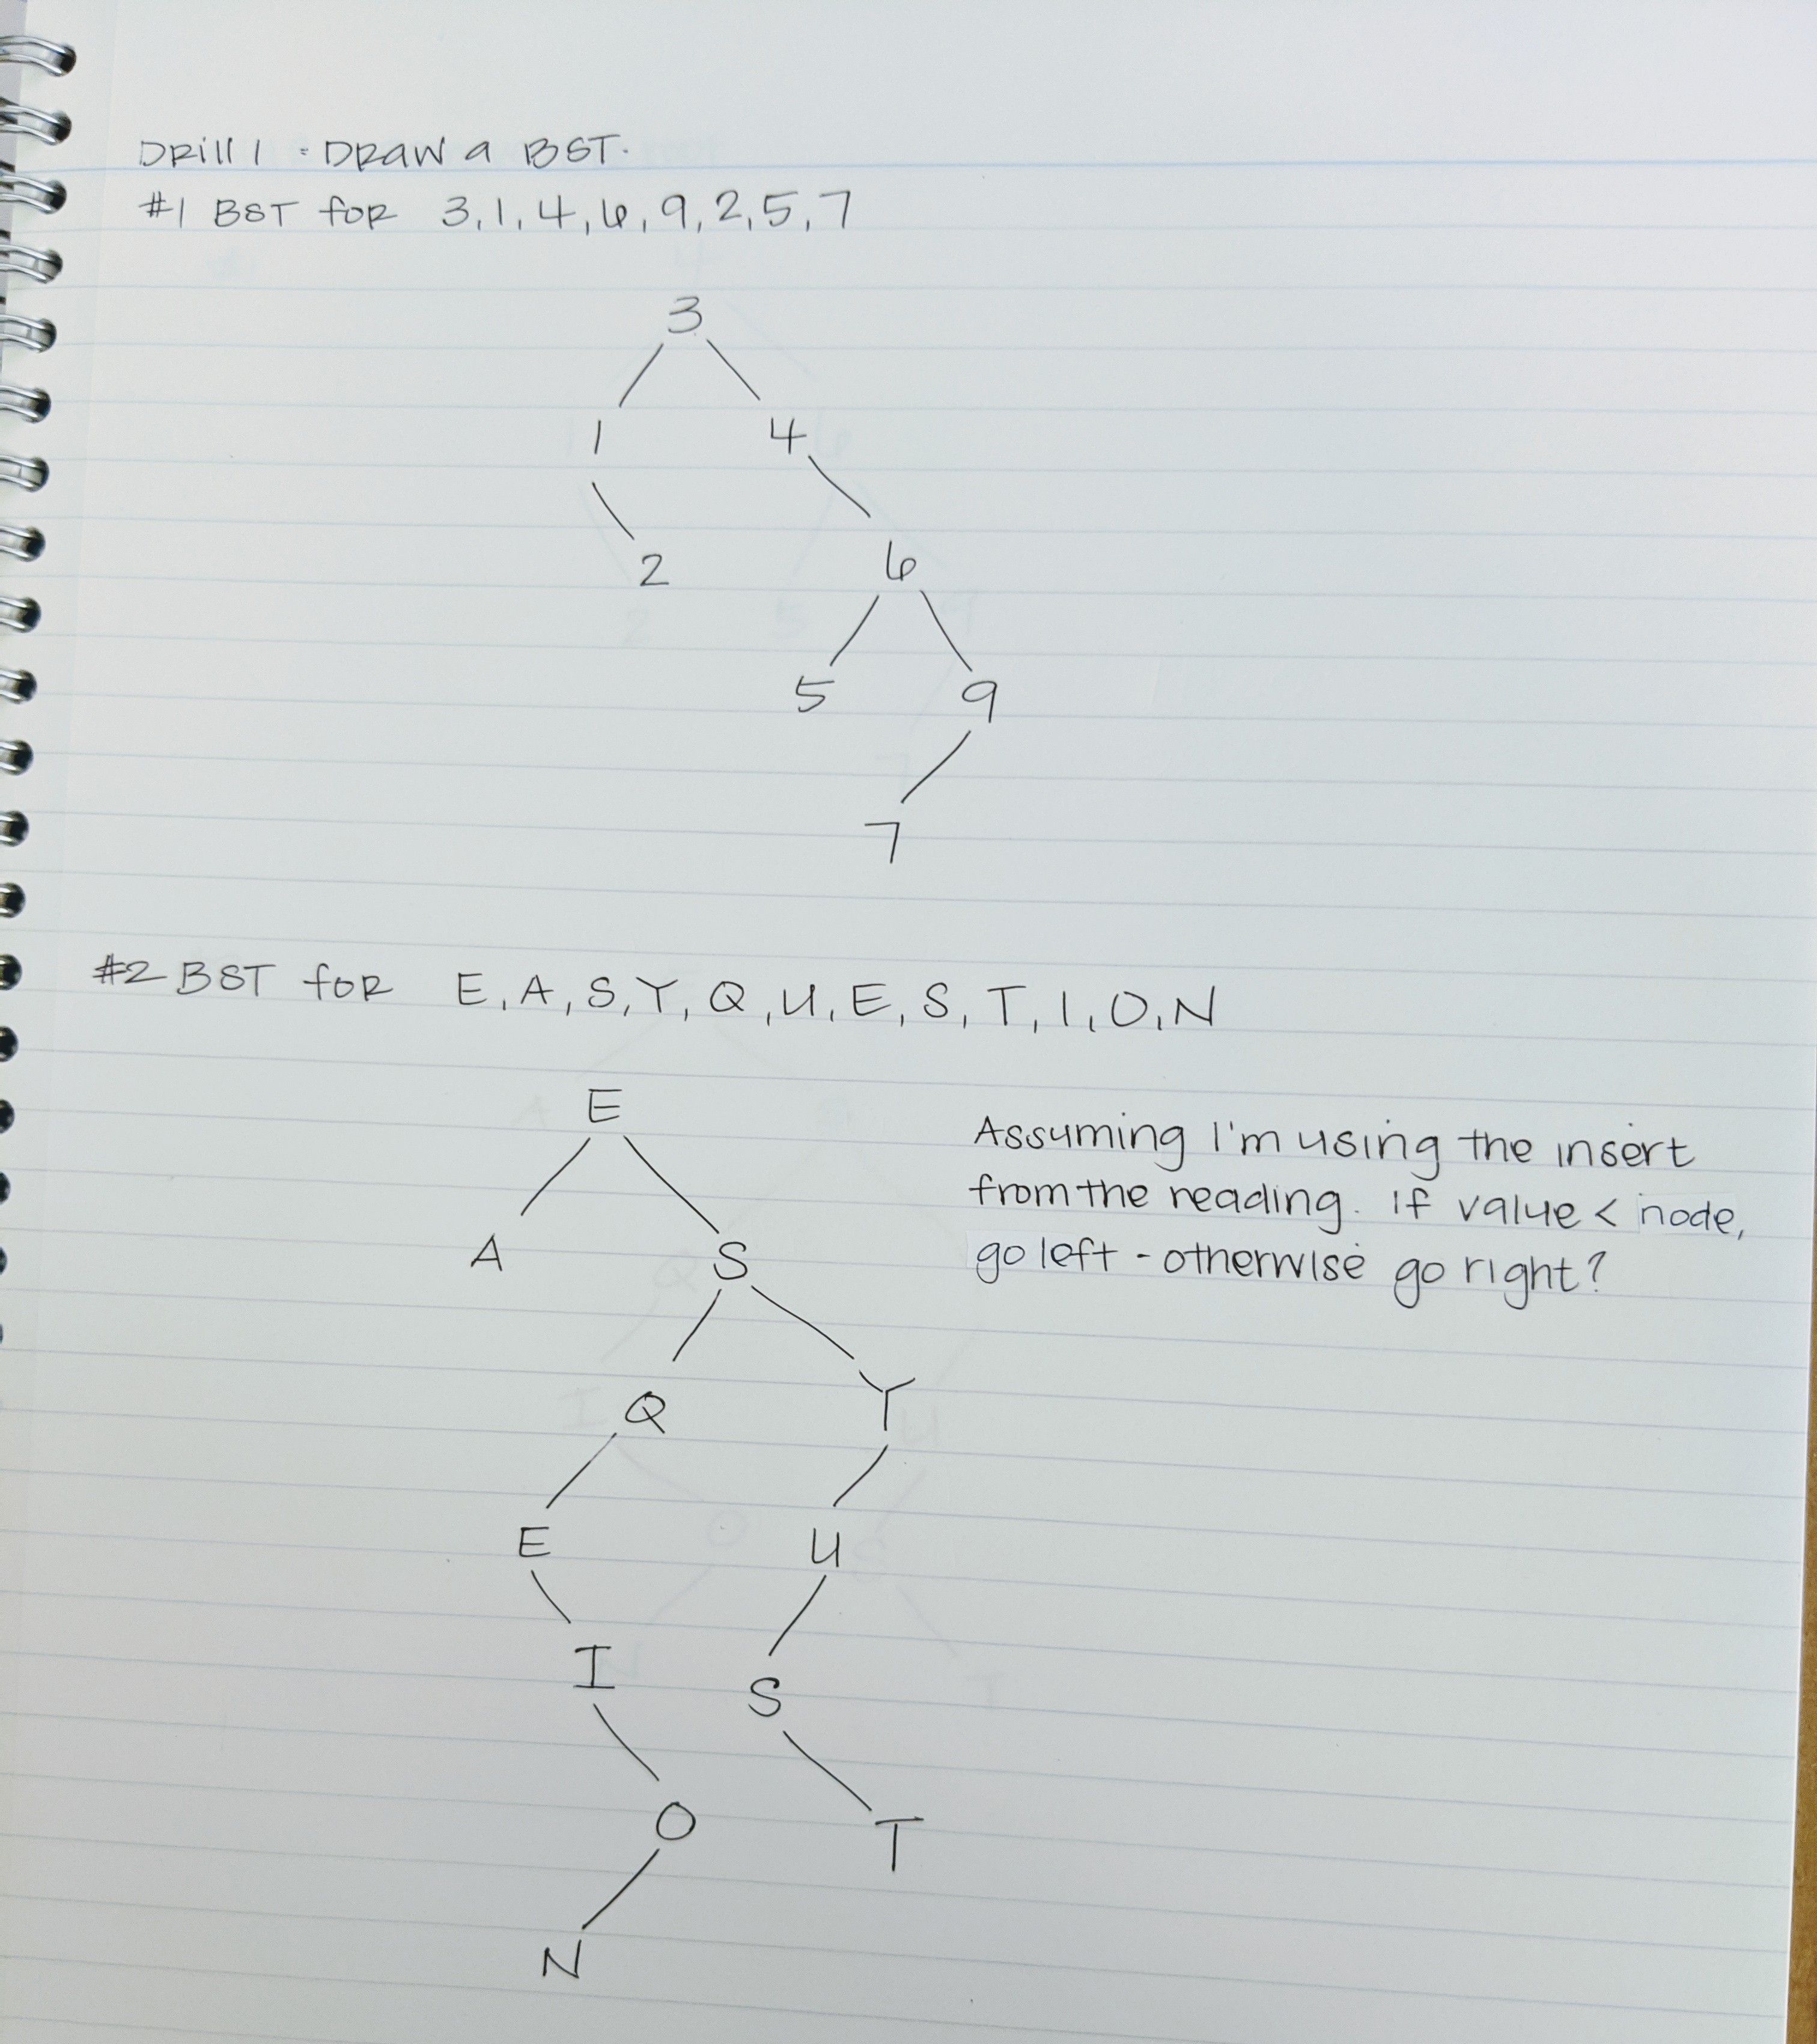 DRill 1 = DRaw a BST.
#1 BST for 3,1,4,6,9,2,5,7
3
1 4
2 6
5 9
7
#2 BST for E,A,S,Y,Q,U,E,S,T,I,O,N
E
A S
Q Y
E U
I S
O T
N
Assuming I'm using the insert
from the reading. if value < node,
go left - otherwise go right?